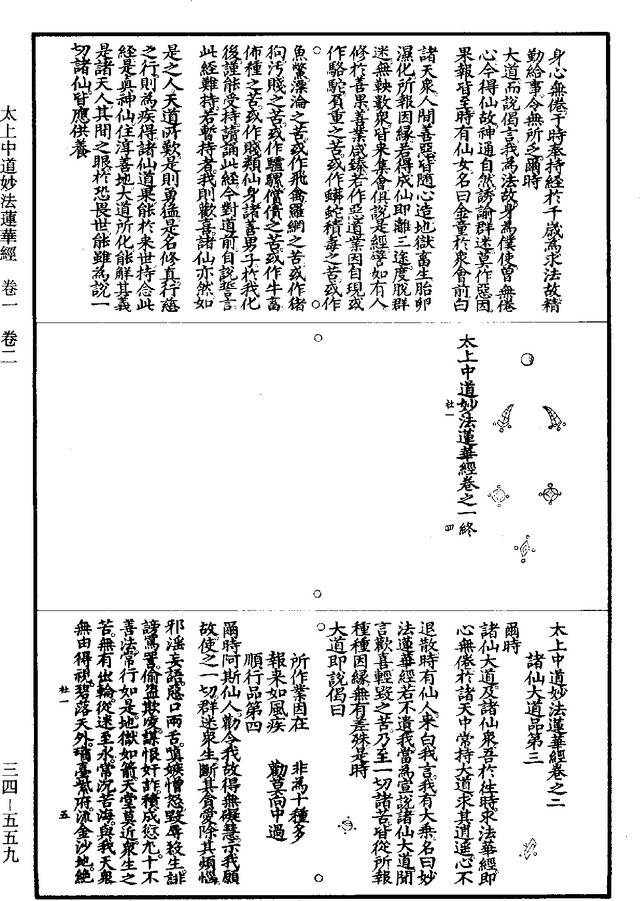 身心無倦于時奉持經於千歲為求法故精
勤給事令無所乏爾時
大道而說偈言我為法故身為僕使曾無倦
心今得仙故神通自然誘諭群迷莫作惡因
果報皆至時有仙女名曰金童於眾會前白
諸天眾人間善惡皆隨心造地獄畜生胎卵
濕化所報因緣若得成仙即離三途度脫群
迷無鞅數眾皆來集會俱說是經譬如有人
修於善果善業咸臻若作惡道業因自現或
作駱駝負重之苦或作蟒蛇積毒之苦或作
魚鱉淪之苦或作飛禽羅網之苦或作猪
狗汚賤之苦或作驢騾償債之苦或作牛畜
佈種之苦或作賤類仙身諸善男子於我化
後謹能受持讀誦此經今對道前自說誓言
此經難持若暫持者我則歡喜諸仙亦然如
是之人天道所歎是則勇猛是名修真行慈
之行則為疾得諸仙道果能於來世持念此
經是真神仙住淳善地大道所化能解其義
是諸天人其間之眼於恐畏世能雖為說一
切諸仙皆應供養
太上中道妙法蓮華經卷之一終
杜一
四
太上中道妙法蓮華經卷之二
諸仙大道品第三
爾時
諸仙大道及諸仙眾吾於往時求法華經即
心無倦於諸天中常持大道求其逍遥心不
退散時有仙人來白我言我有大乘名曰妙
法蓮華經若不遺我當為宣說諸仙大道聞
言歡喜輕毀之苦乃至一切諸苦皆從所報
種種因緣無有差殊是時
大道即說偈曰
所作業因在　非為十種多
報來如風疾　勸莫向中過
順行品第四
爾時阿斯仙人勸令我故得無礙慧示我願
故使之一切群迷眾生斷其貪愛除其煩惱
邪淫妄語惡口兩舌嗔嫉憎怒毀辱殺生誹
謗罵詈偷盜欺凌謀恨奸詐積成愆尤十不
善法常行如是地獄如箭天堂莫近眾生之
苦無有出輪從迷至永常沉苦海與我天眾
無由得視碧落天外瓊臺紫府流金沙地絕
杜一
五
太上中道妙法蓮華經　卷一　卷二
三四－五五九